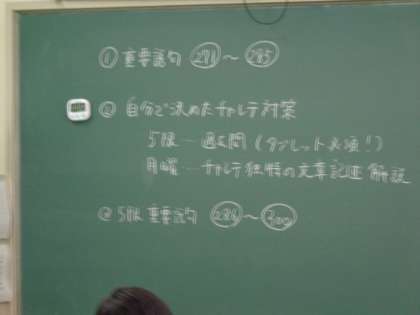 ① 重要語句 281～285
② 自分で決めたチャレテ対策
5限…過去問(タブレット必須!)
月曜…チャレテ独特の文章記述解説
② 5限重要語句 286～300